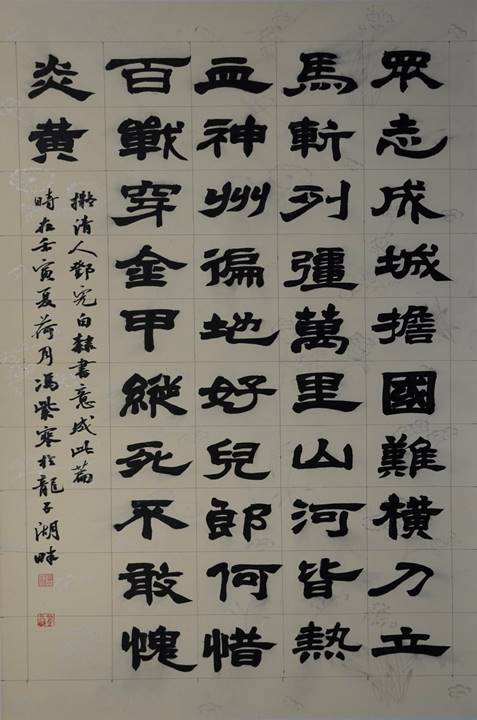 眾志成城擔國難橫刀立
馬斬列彊萬里山河皆熱
血神州徧地好兒郎何惜
百戰穿金甲縱死不敢愧
炎黃
擬清人鄧完白隸書意成此篇
時在壬寅夏荷月馮紫寒於龍子湖畔